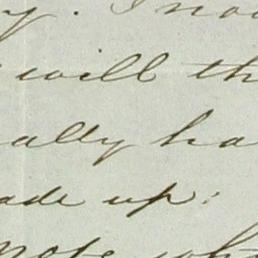 y. I now
will th
ally ha
ade up:
note wh